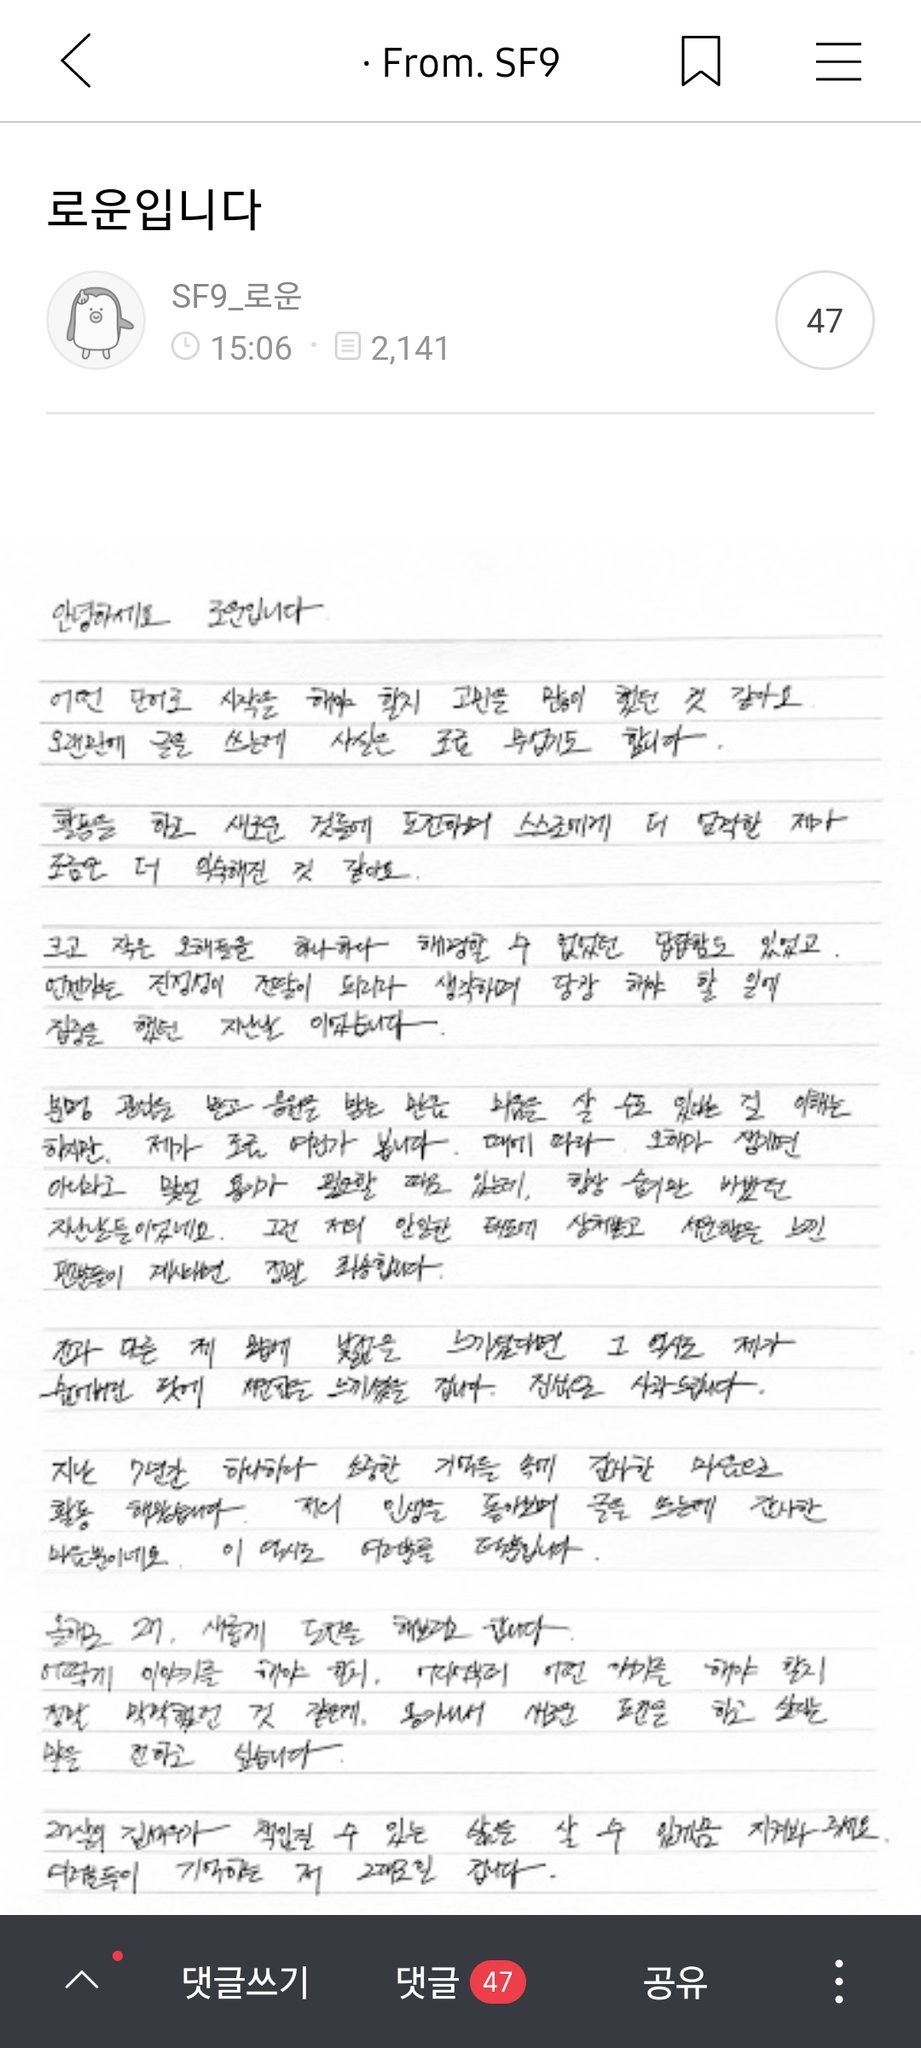 · From. SF9
로운입니다
SF9_로운
15:06 · 2,141
47
안녕하세요 로운입니다
어떤 단어로 시작을 해야 할지 고민을 많이 했던 것 같아요
오랜만에 글을 쓰는게 사실은 조금 무섭기도 합니다.
활동을 하고 새로운 것들에 도전하며 스스로에게 더 엄격한 제가
조금은 더 익숙해진 것 같아요.
크고 작은 오해들을 하나하나 해명할 수 없었던 답답함도 있었고.
언젠가는 진정성이 전달이 되리라 생각하며 당장 해야 할 일에
집중을 했던 지난날 이었습니다.
분명 관심을 받고 응원을 받는 만큼 미움을 살 수도 있다는 걸 이해는
하지만, 제가 조금 여린가 봅니다. 때에 따라 오해가 생기면
아니라고 맞설 용기가 필요할 때도 있는데, 항상 숨기만 바빴던
지난날들이었네요. 그런 저의 안일한 태도에 상처받고 서운함을 느낀
팬분들이 계시다면 정말 죄송합니다.
전과 다른 제 모습에 낯섦을 느끼셨다면 그 역시도 제가
숨어버린 탓에 서운함을 느끼셨을 겁니다. 진심으로 사과드립니다.
지난 7년간 하나하나 소중한 기억들 속에 감사한 마음으로
활동 해왔습니다. 저의 인생을 돌아보며 글을 쓰는데 감사한
마음뿐이네요. 이 역시도 여러분들 덕분입니다.
올해로 27, 새롭게 도전을 해보려고 합니다.
어떻게 이야기를 해야 할지, 어디서부터 어떤 얘기를 해야 할지
정말 막막했던 것 같은데, 용기내서 새로운 도전을 하고 싶다는
말을 전하고 싶습니다.
27살의 김석우가 책임질 수 있는 삶을 살 수 있게끔 지켜봐 주세요.
여러분들이 기억하는 저 그대로일 겁니다.
댓글쓰기 댓글 47 공유